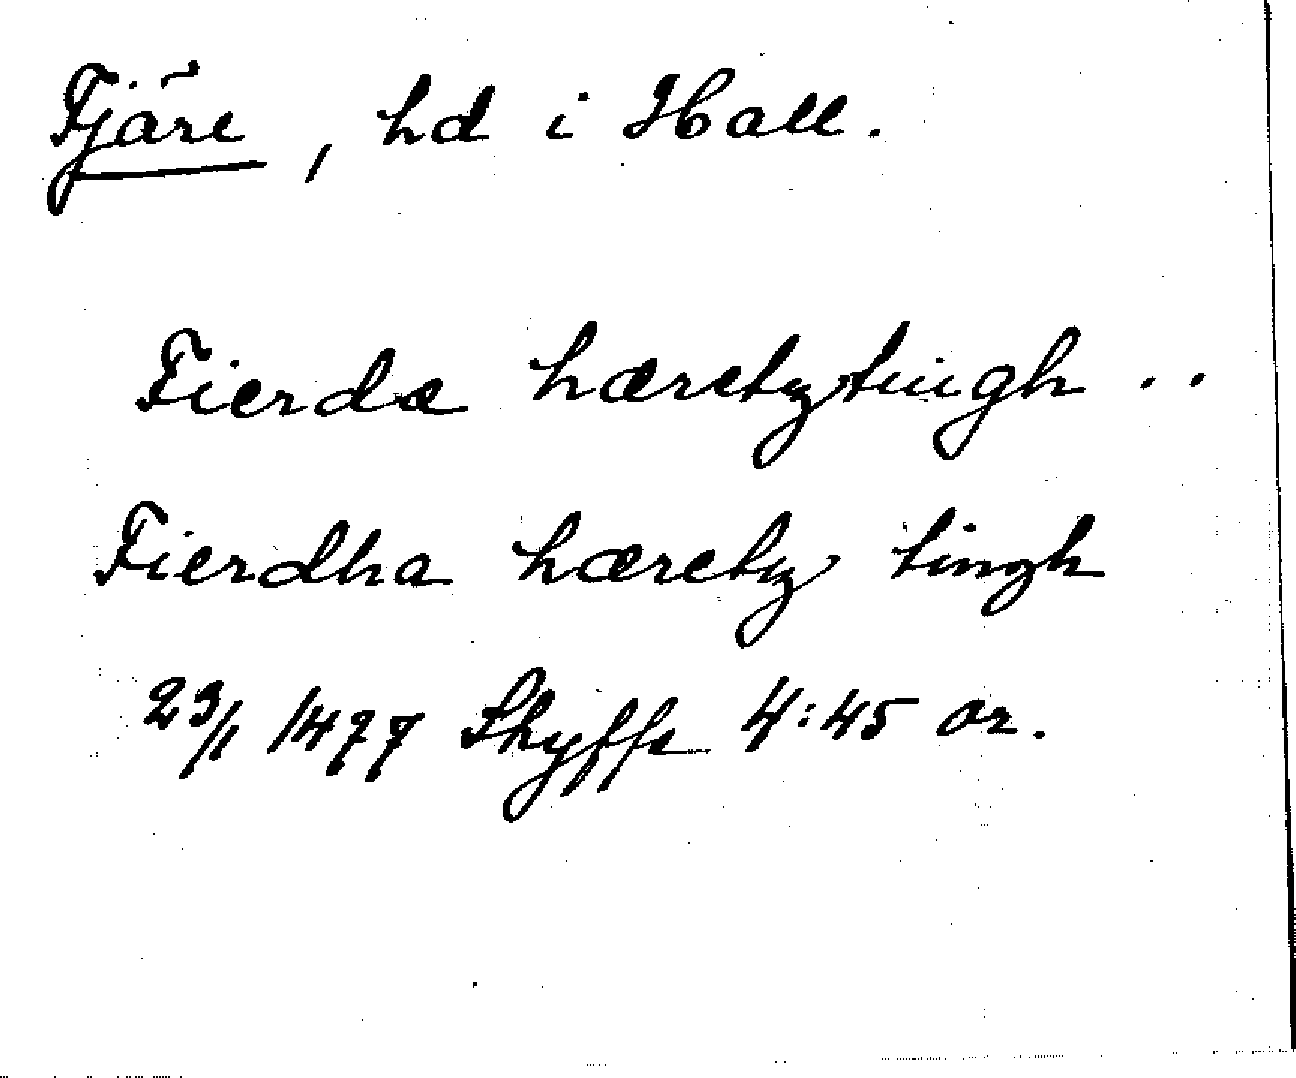 Fjäre, hd i Hall.
Fierdæ hæretztingh ..
Fierdha hæretz tingh
23/1 1477 Styffe 4:45 or.